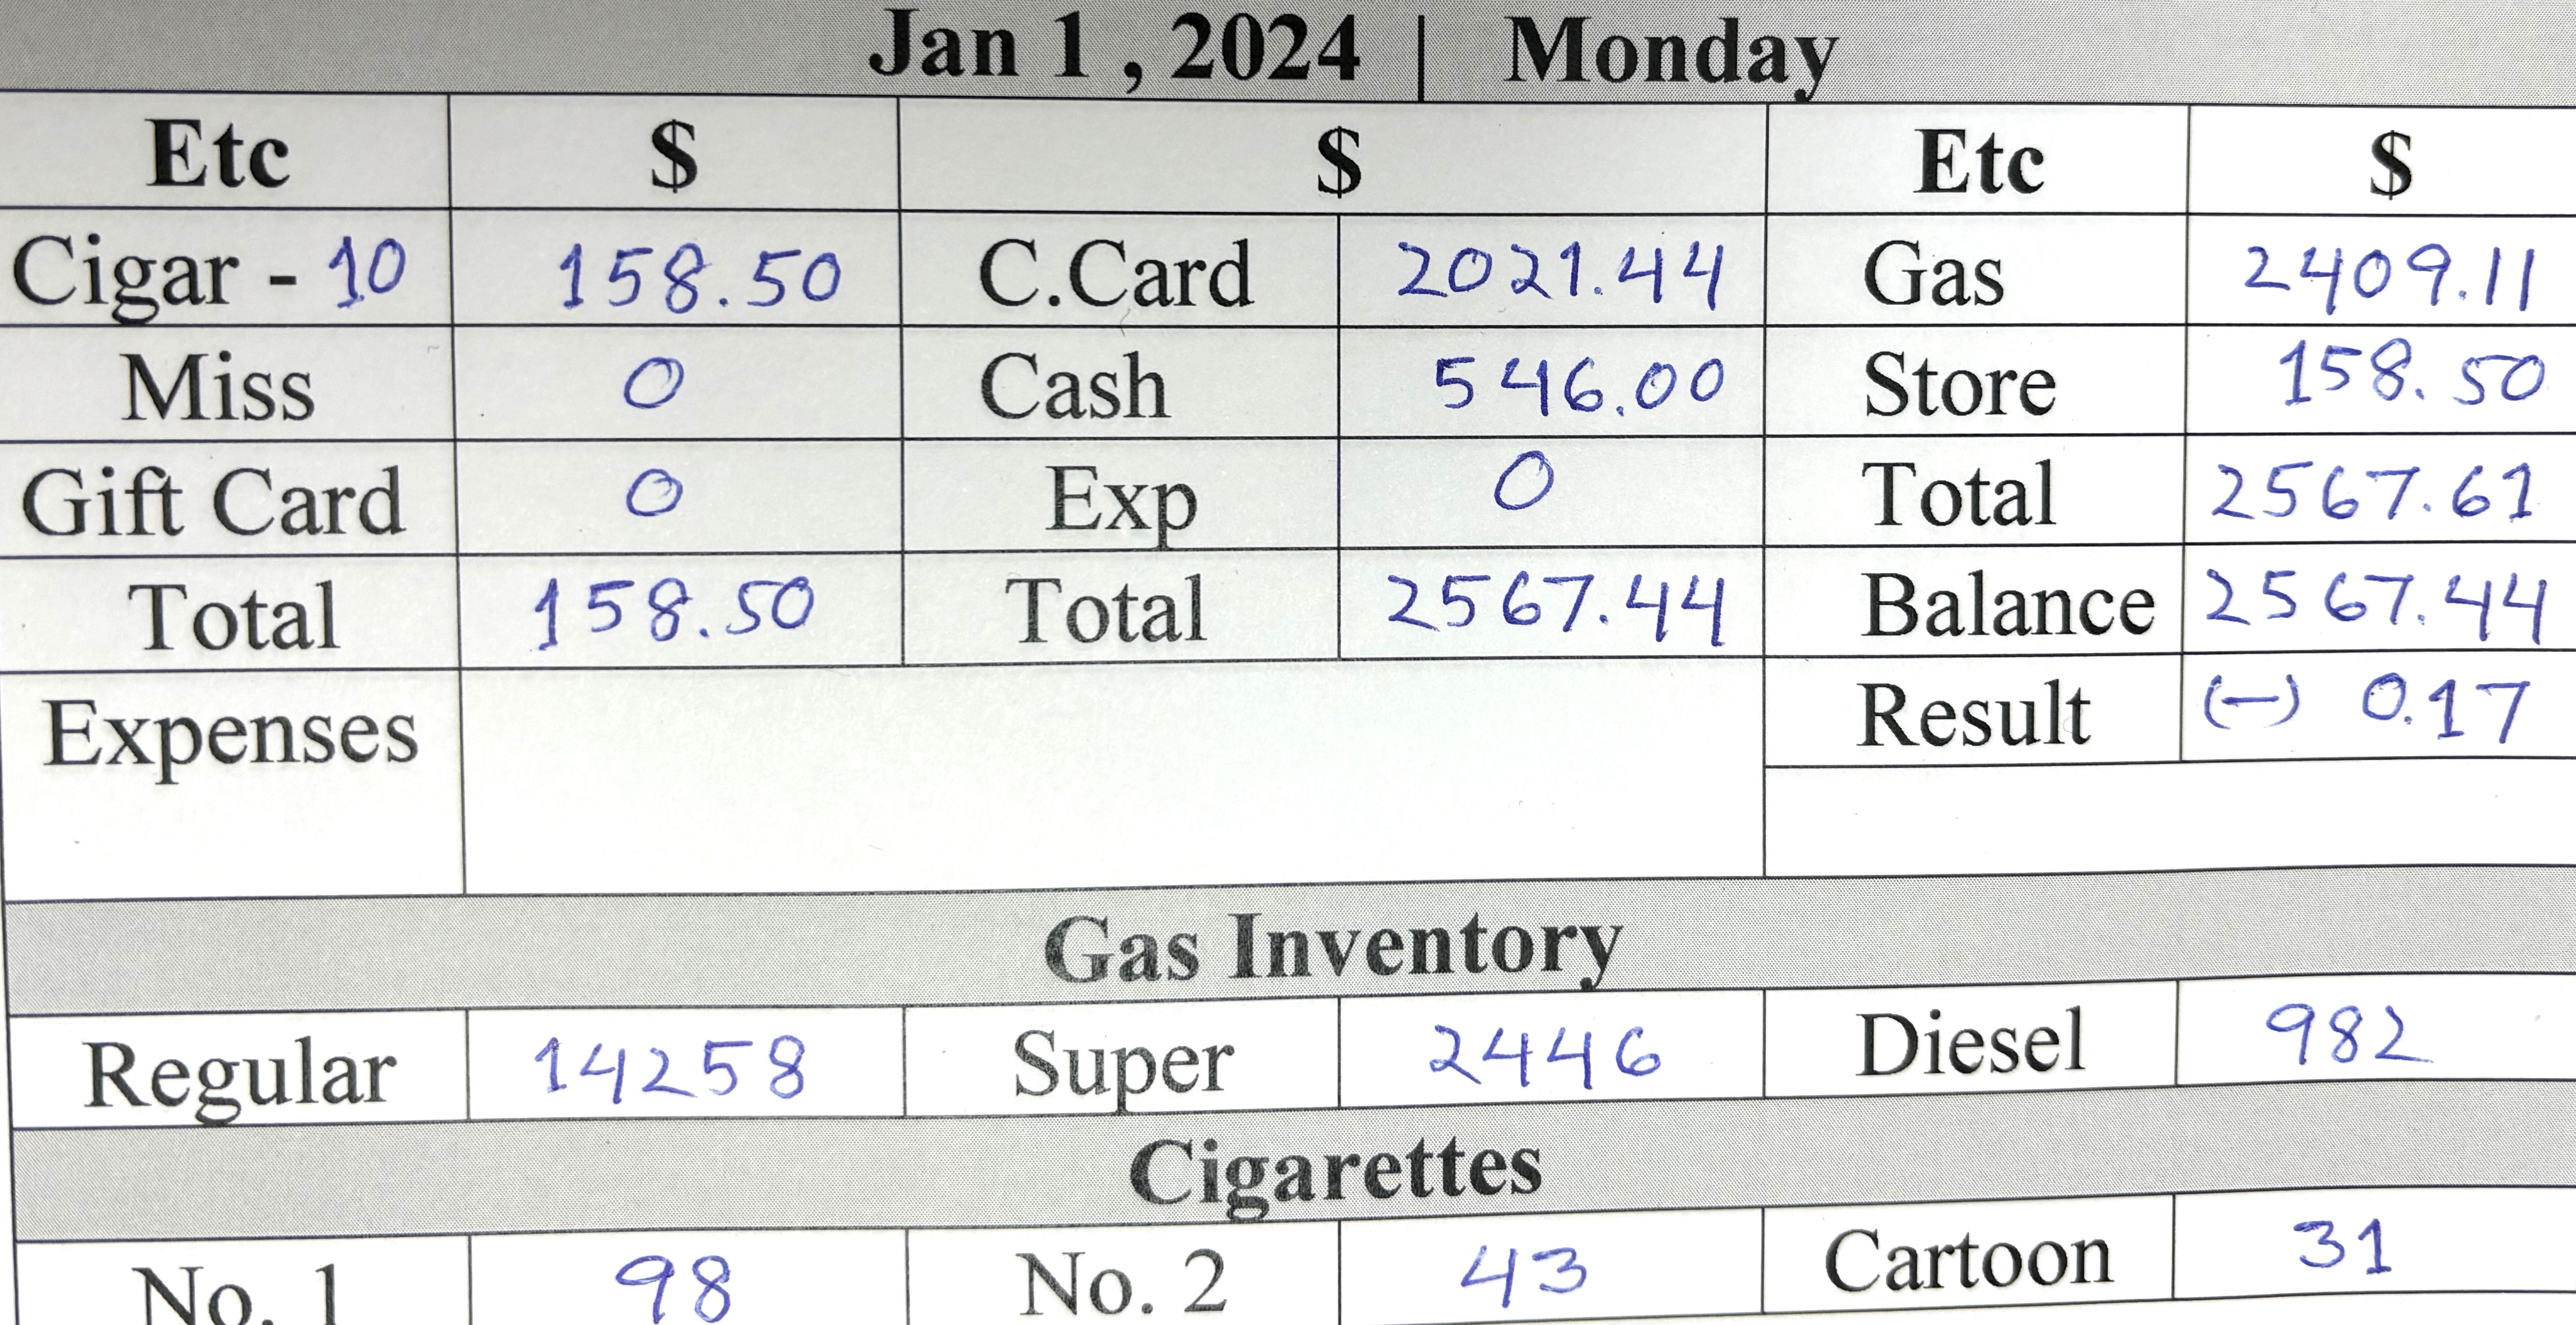 Jan 1 , 2024 | Monday
Etc $ $ Etc $
Cigar - 10 158.50 C.Card 2021.44 Gas 2409.11
Miss 0 Cash 546.00 Store 158.50
Gift Card 0 Exp 0 Total 2567.61
Total 158.50 Total 2567.44 Balance 2567.44
Expenses Result (-) 0.17
Gas Inventory
Regular 14258 Super 2446 Diesel 982
Cigarettes
No. 1 98 No. 2 43 Cartoon 31